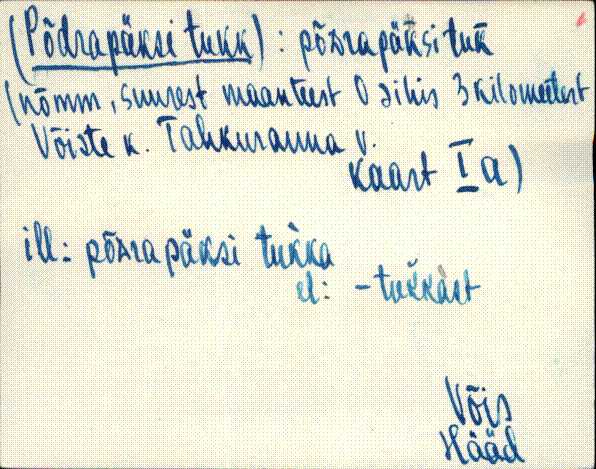 (Põdrapäksi tukk) : põdrapäksi tuk̀k
(nõmm, suurest maanteest O sihis 3 kilomeetrit
Võiste k. Tahkuranna v.
Kaart I a)
ill: põdrapäksi tukka
el: -tukkast
Võis
Hääd